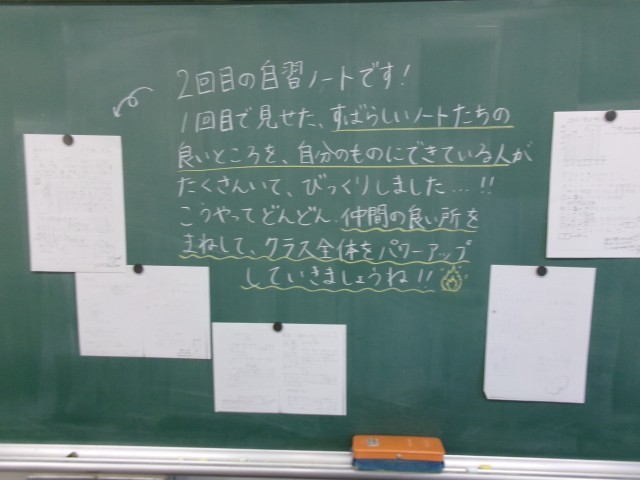 2回目の自習ノートです!
1回目で見せた、すばらしいノートたちの
良いところを、自分のものにできている人が
たくさんいて、びっくりしました…!!
こうやってどんどん、仲間の良い所を
まねして、クラス全体をパワーアップ
していきましょうね!!